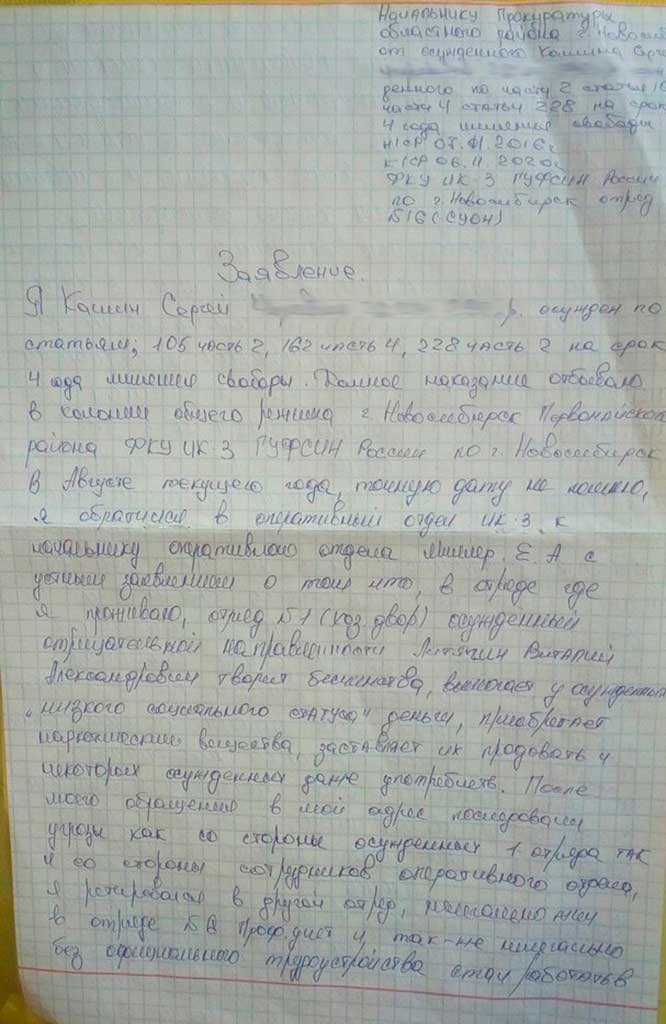 Начальнику Прокуратуры
областного района г. Новосиб
от осужденного Кашина Серг
денного по части 2 статьи 1
части 4 статьи 228 на срок
4 года лишения свободы
Н/СР 07.11.2016г
К/СР 06.11.2020г
ФКУ ИК-3 ГУФСИН России
по г. Новосибирск отряд
№16 (СУОН)
Заявление.
Я Кашин Сергей р. осужден по
статьям; 105 часть 2, 162 часть 4, 228 часть 2 на срок
4 года лишения свободы. Данное наказание отбываю
в колонии общего режима г. Новосибирск Первомайском
района ФКУ ИК-3 ГУФСИН России по г. Новосибирск
В Августе текущего года, точную дату не помню,
я обратился в оперативный отдел ИК-3 к
начальнику оперативного отдела Миллер Е. А с
устным заявлением о том что, в отряде где
я проживаю, отряд №1 (хоз. двор) осужденный
отрицательной направленности Виталий
Александрович творит бесчинства, вымогает у осужденных
"низкого социального статуса" деньги, приобретает
наркотические вещества, заставляет их продовать и
некоторых осужденных даже употреблять. После
моего обращения в мой адрес последовали
угрозы как со стороны осужденных 1 отряда так
и со стороны сотрудников оперативного отдела,
я в другой отряд,
в отряде №8 и, так-же нелегально
без официального трудоустройства стал работать в